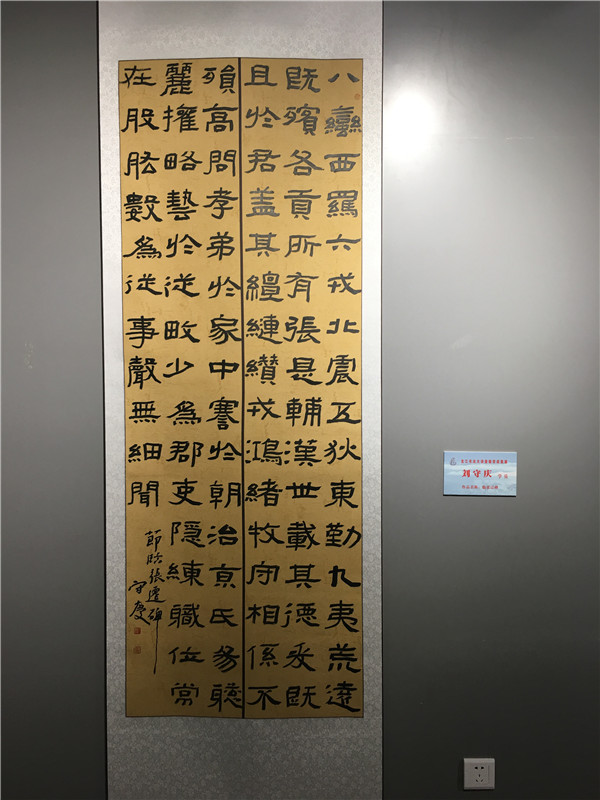 八蠻西羈六戎北震五狄東勤九夷荒遠
既殯各貢所有張是輔漢世載其德爰既
且於君盖其繵縺纘戎鴻緒牧守相係不
殞高問孝弟於家中謇於朝治京氏易聰
麗權略藝於從畋少為郡吏隱練職位常
在股肱數為從事聲無細聞
節臨張遷碑
守慶
刘守庆